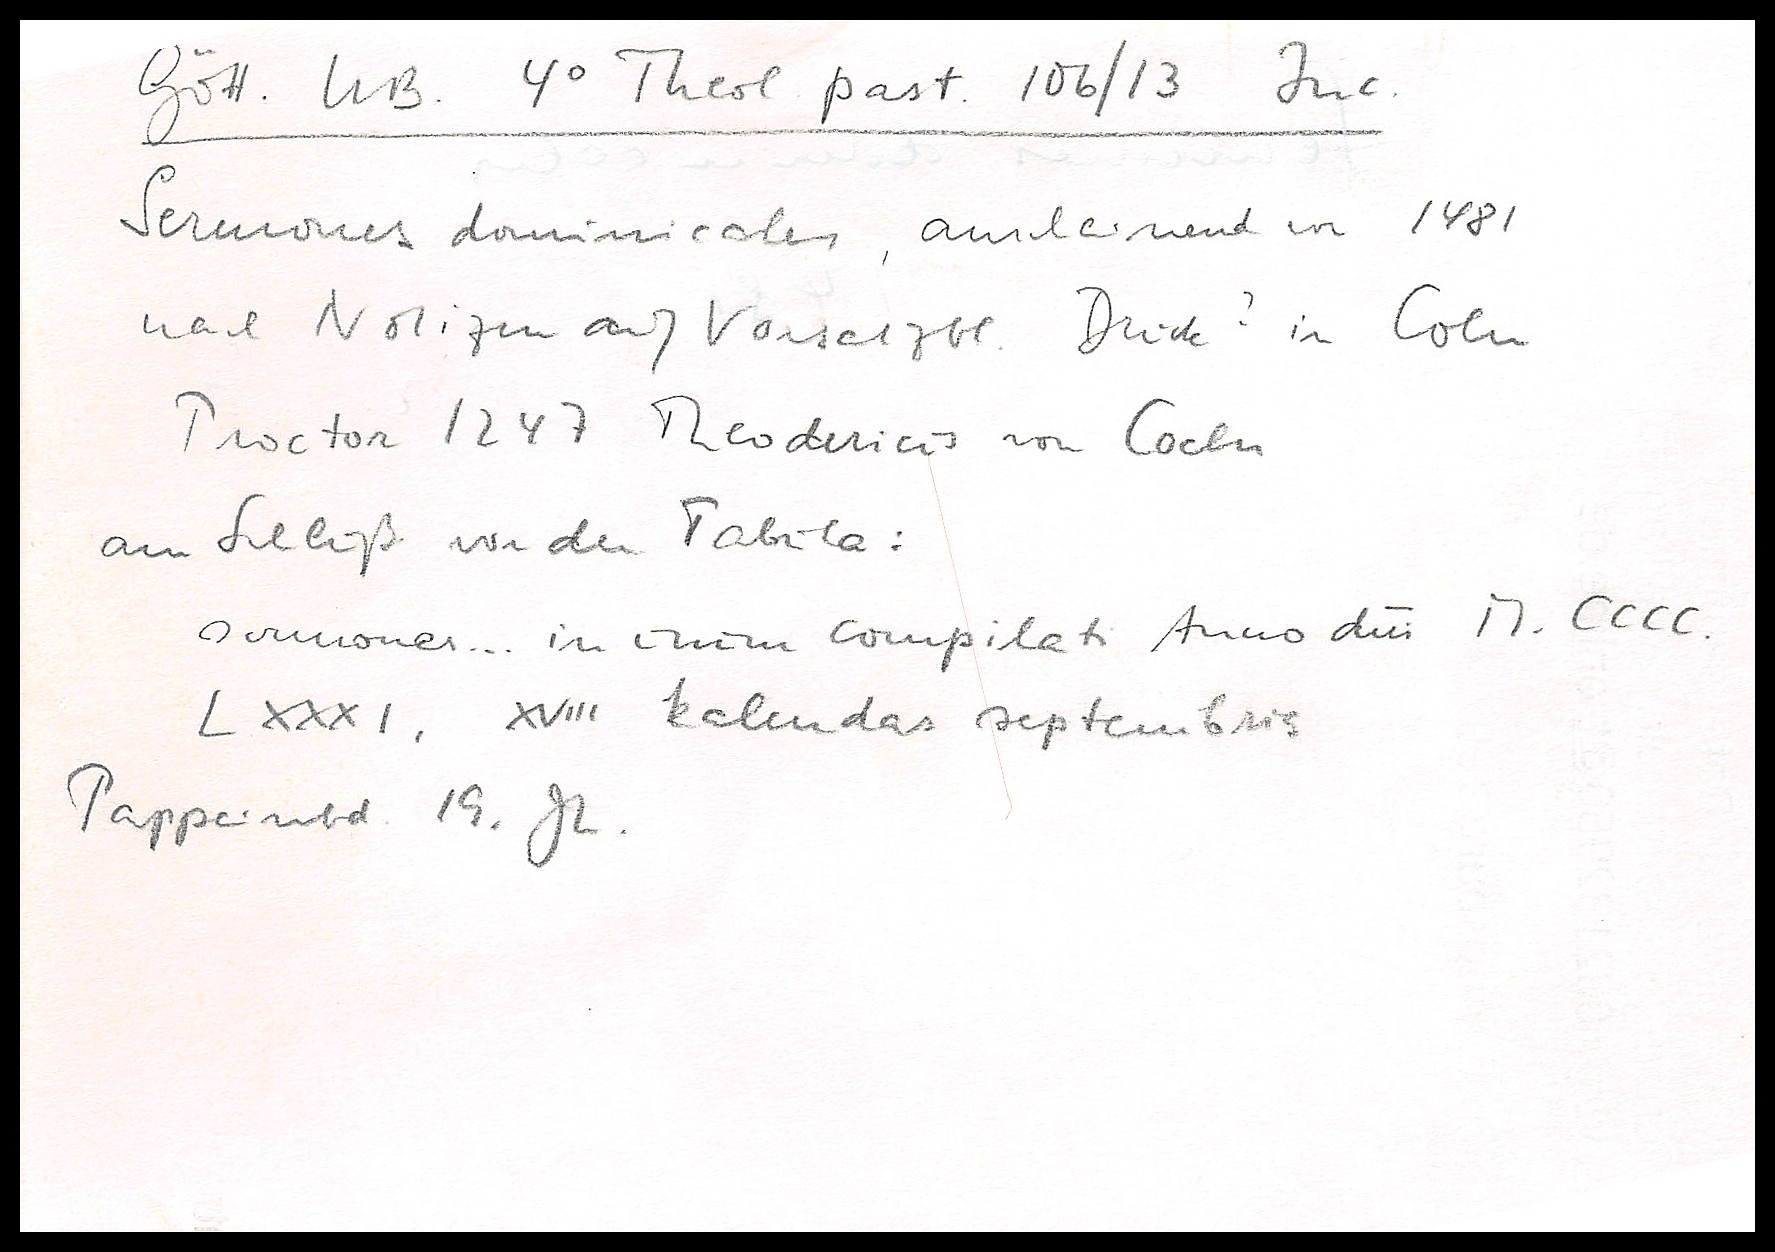 Gött. UB. 4° Theol past. 106/13 Inc.
Sermones dominicales, anscheinend von 1481
nach Notizen auf Vorsatzbl. Druck? in Cöln
Proctor 1247 Theodericus von Coeln
am Schluß von der Tabula:
sermones... in unum compilati Anno dni M. CCCC.
LXXXI, XVIII kalendas septembris
Pappeinbd. 19. Jh.